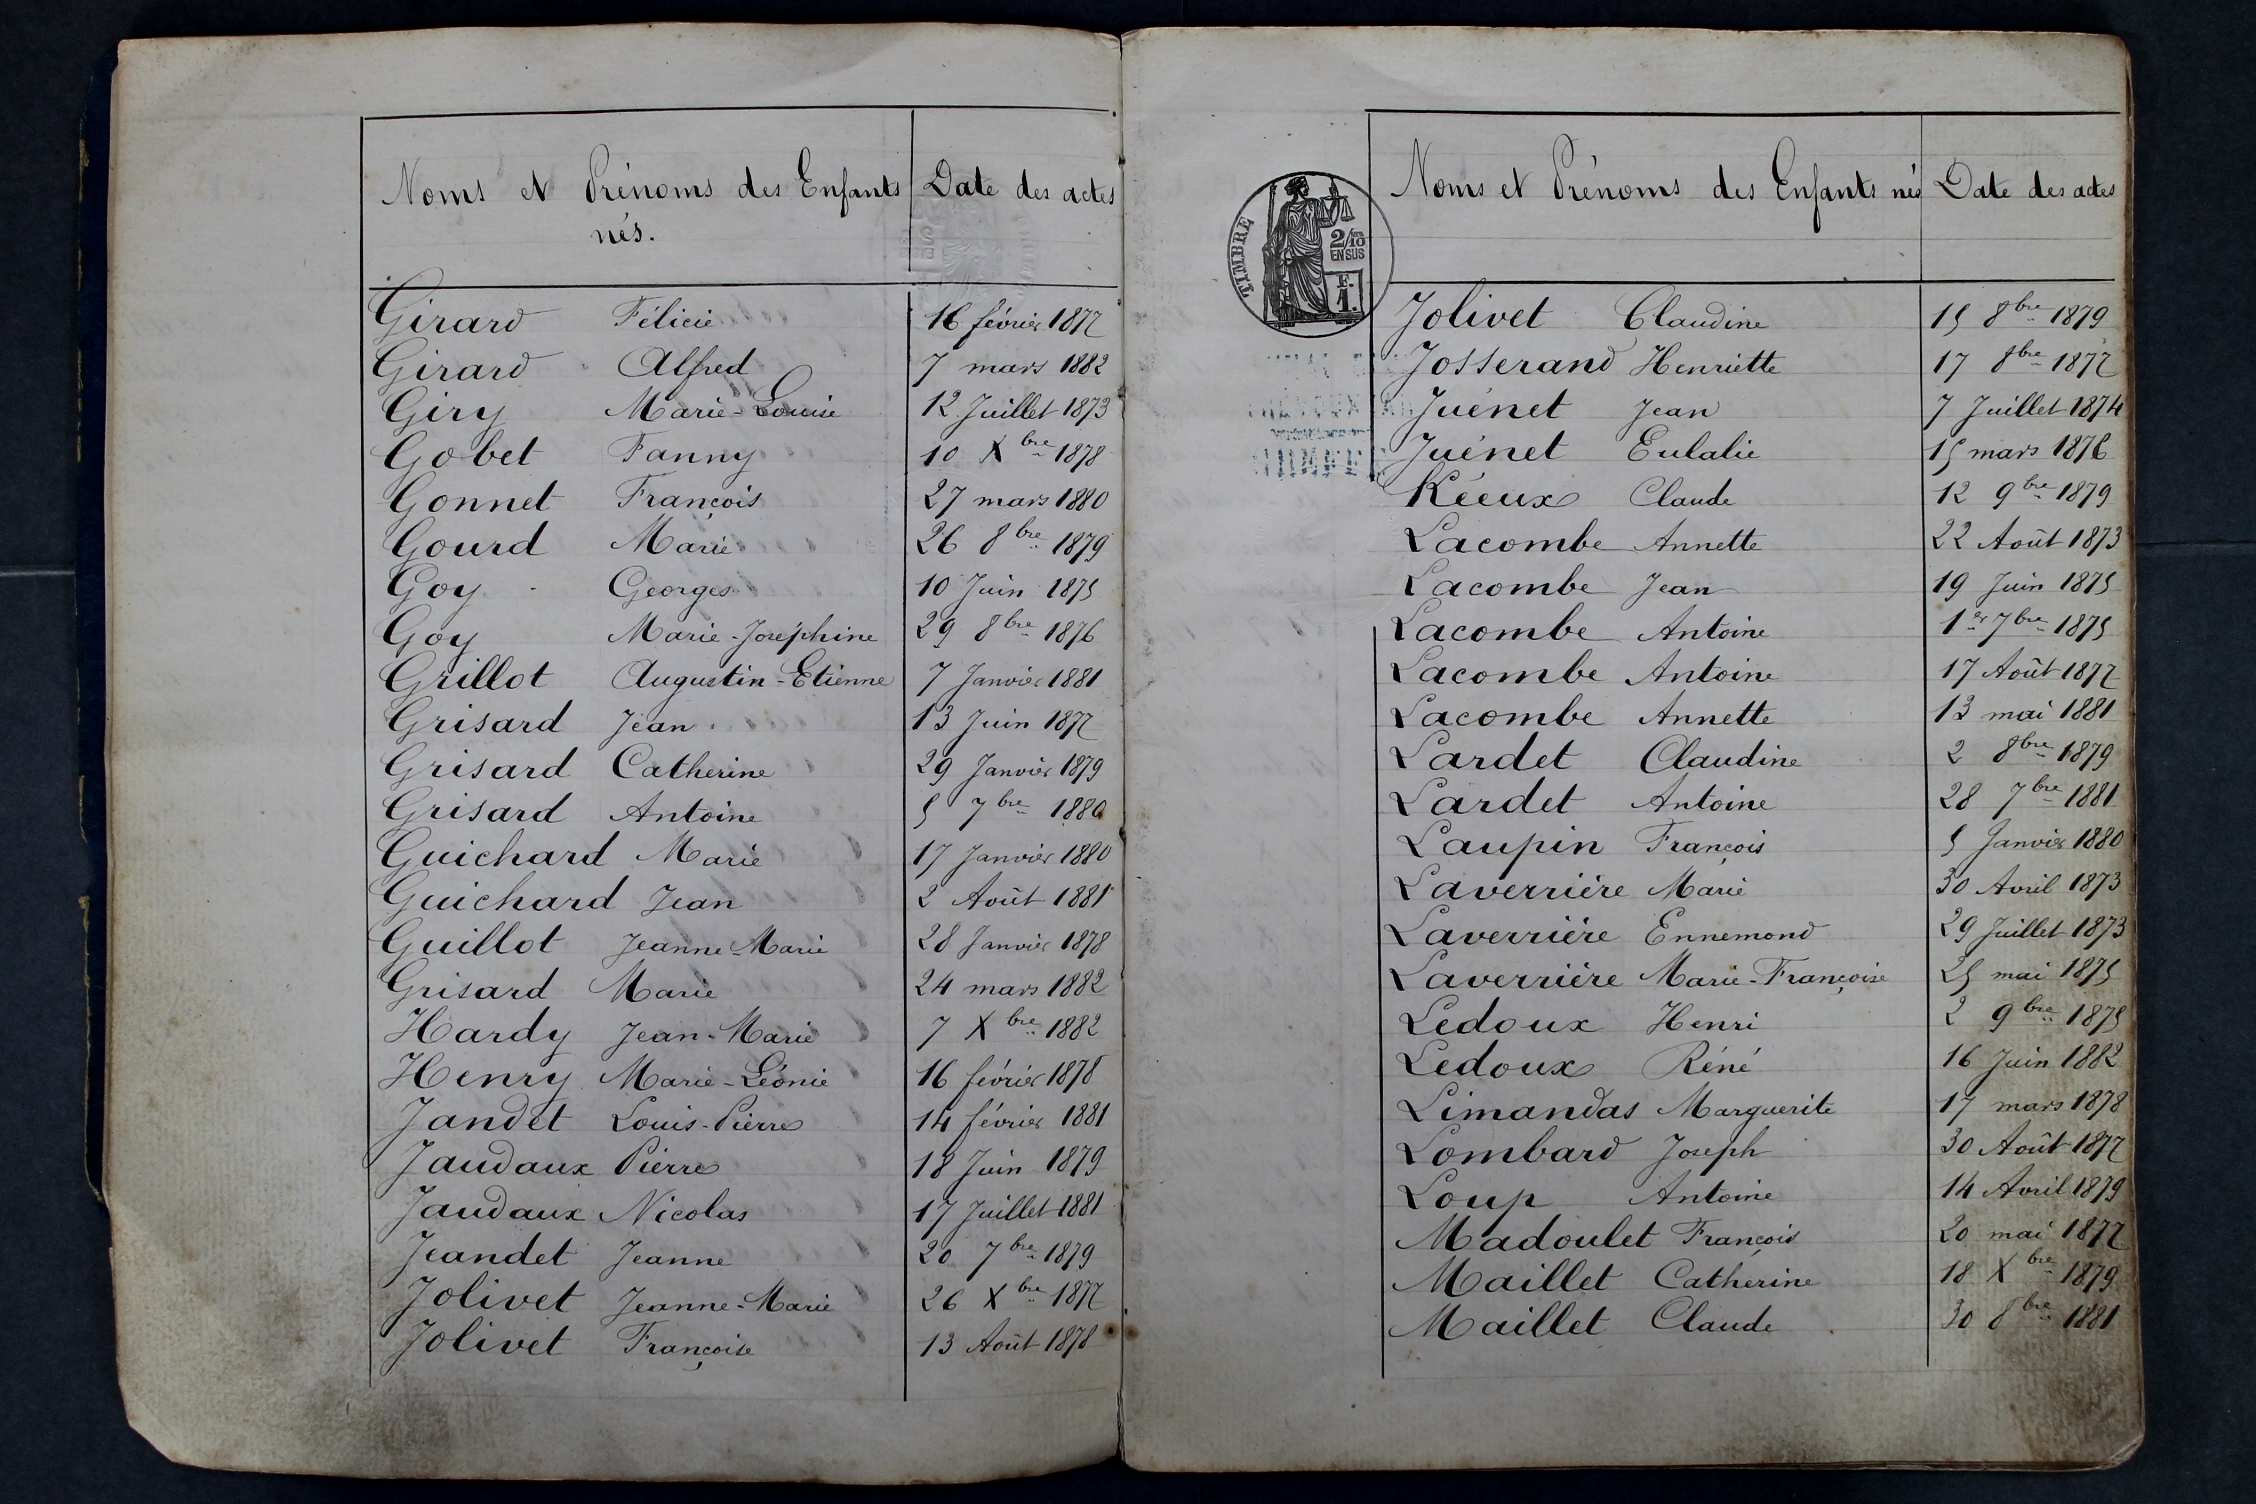 Noms et Prénoms des Enfants nés.
Date des actes
Girard Félicie 16 février 1877
Girard Alfred 7 mars 1882
Giry Marie-Louise 12 Juillet 1873
Gobet Fanny 10 Xbre 1878
Gonnet François 27 mars 1880
Gourd Marie 26 8bre 1879
Goy Georges 10 Juin 1875
Goy Marie-Joséphine 29 8bre 1876
Grillot Augustin-Etienne 7 Janvier 1881
Grisard Jean 13 Juin 1877
Grisard Catherine 29 Janvier 1879
Grisard Antoine 5 7bre 1880
Guichard Marie 17 Janvier 1880
Guichard Jean 2 Août 1881
Guillot Jeanne-Marie 28 Janvier 1878
Grisard Marie 24 mars 1882
Hardy Jean-Marie 7 Xbre 1882
Henry Marie-Léonie 16 février 1878
Jandet Louis-Pierre 14 février 1881
Jaudaux Pierre 18 Juin 1879
Jaudaux Nicolas 17 Juillet 1881
Jeandet Jeanne 20 7bre 1879
Jolivet Jeanne-Marie 26 Xbre 1877
Jolivet Françoise 13 Août 1878
TIMBRE
2/10
EN SUS
F.
1.
Noms et Prénoms des Enfants nés
Date des actes
Jolivet Claudine 15 8bre 1879
Josserand Henriette 17 8bre 1877
Juénet Jean 7 Juillet 1874
Juénet Eulalie 15 mars 1876
Kéeux Claude 12 9bre 1879
Lacombe Annette 22 Août 1873
Lacombe Jean 19 Juin 1875
Lacombe Antoine 1er 7bre 1875
Lacombe Antoine 17 Août 1877
Lacombe Annette 13 mai 1881
Lardet Claudine 2 8bre 1879
Lardet Antoine 28 7bre 1881
Laupin François 5 Janvier 1880
Laverrière Marie 30 Avril 1873
Laverrière Ennemond 29 Juillet 1873
Laverrière Marie-Françoise 25 mai 1875
Ledoux Henri 2 9bre 1875
Ledoux Réné 16 Juin 1882
Limandas Marguerite 17 mars 1878
Lombard Joseph 30 Août 1877
Loup Antoine 14 Avril 1879
Madoulet François 20 mai 1877
Maillet Catherine 18 Xbre 1879
Maillet Claude 30 8bre 1881